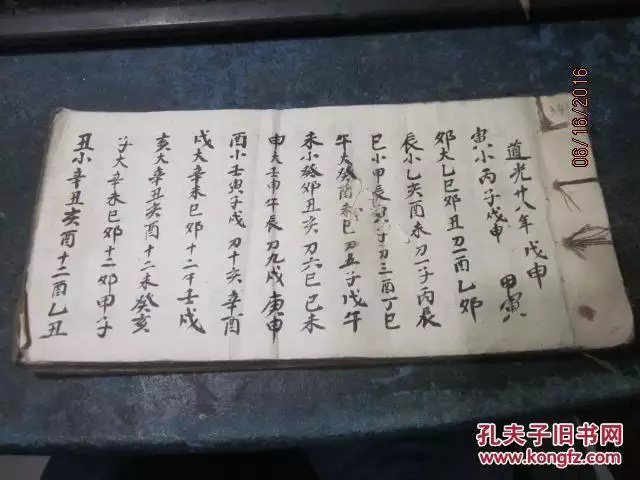 道光廿八年戊申
寅小丙子戌申 甲寅
夘大乙巳夘丑刀一酉乙夘
辰小乙亥酉未刀一子丙辰
巳小甲辰寅子刀三酉丁巳
午大癸酉未巳刀五子戊午
未小癸夘丑亥刀六巳己未
申大壬申午辰刀九戌庚申
酉小壬寅子戌刀十亥辛酉
戌大辛未巳夘十二壬戌
亥大辛丑亥酉十二未癸亥
子大辛未巳夘十二夘甲子
丑小辛丑亥酉十二酉乙丑
06/16/2016
孔夫子旧书网
www.kongfz.com